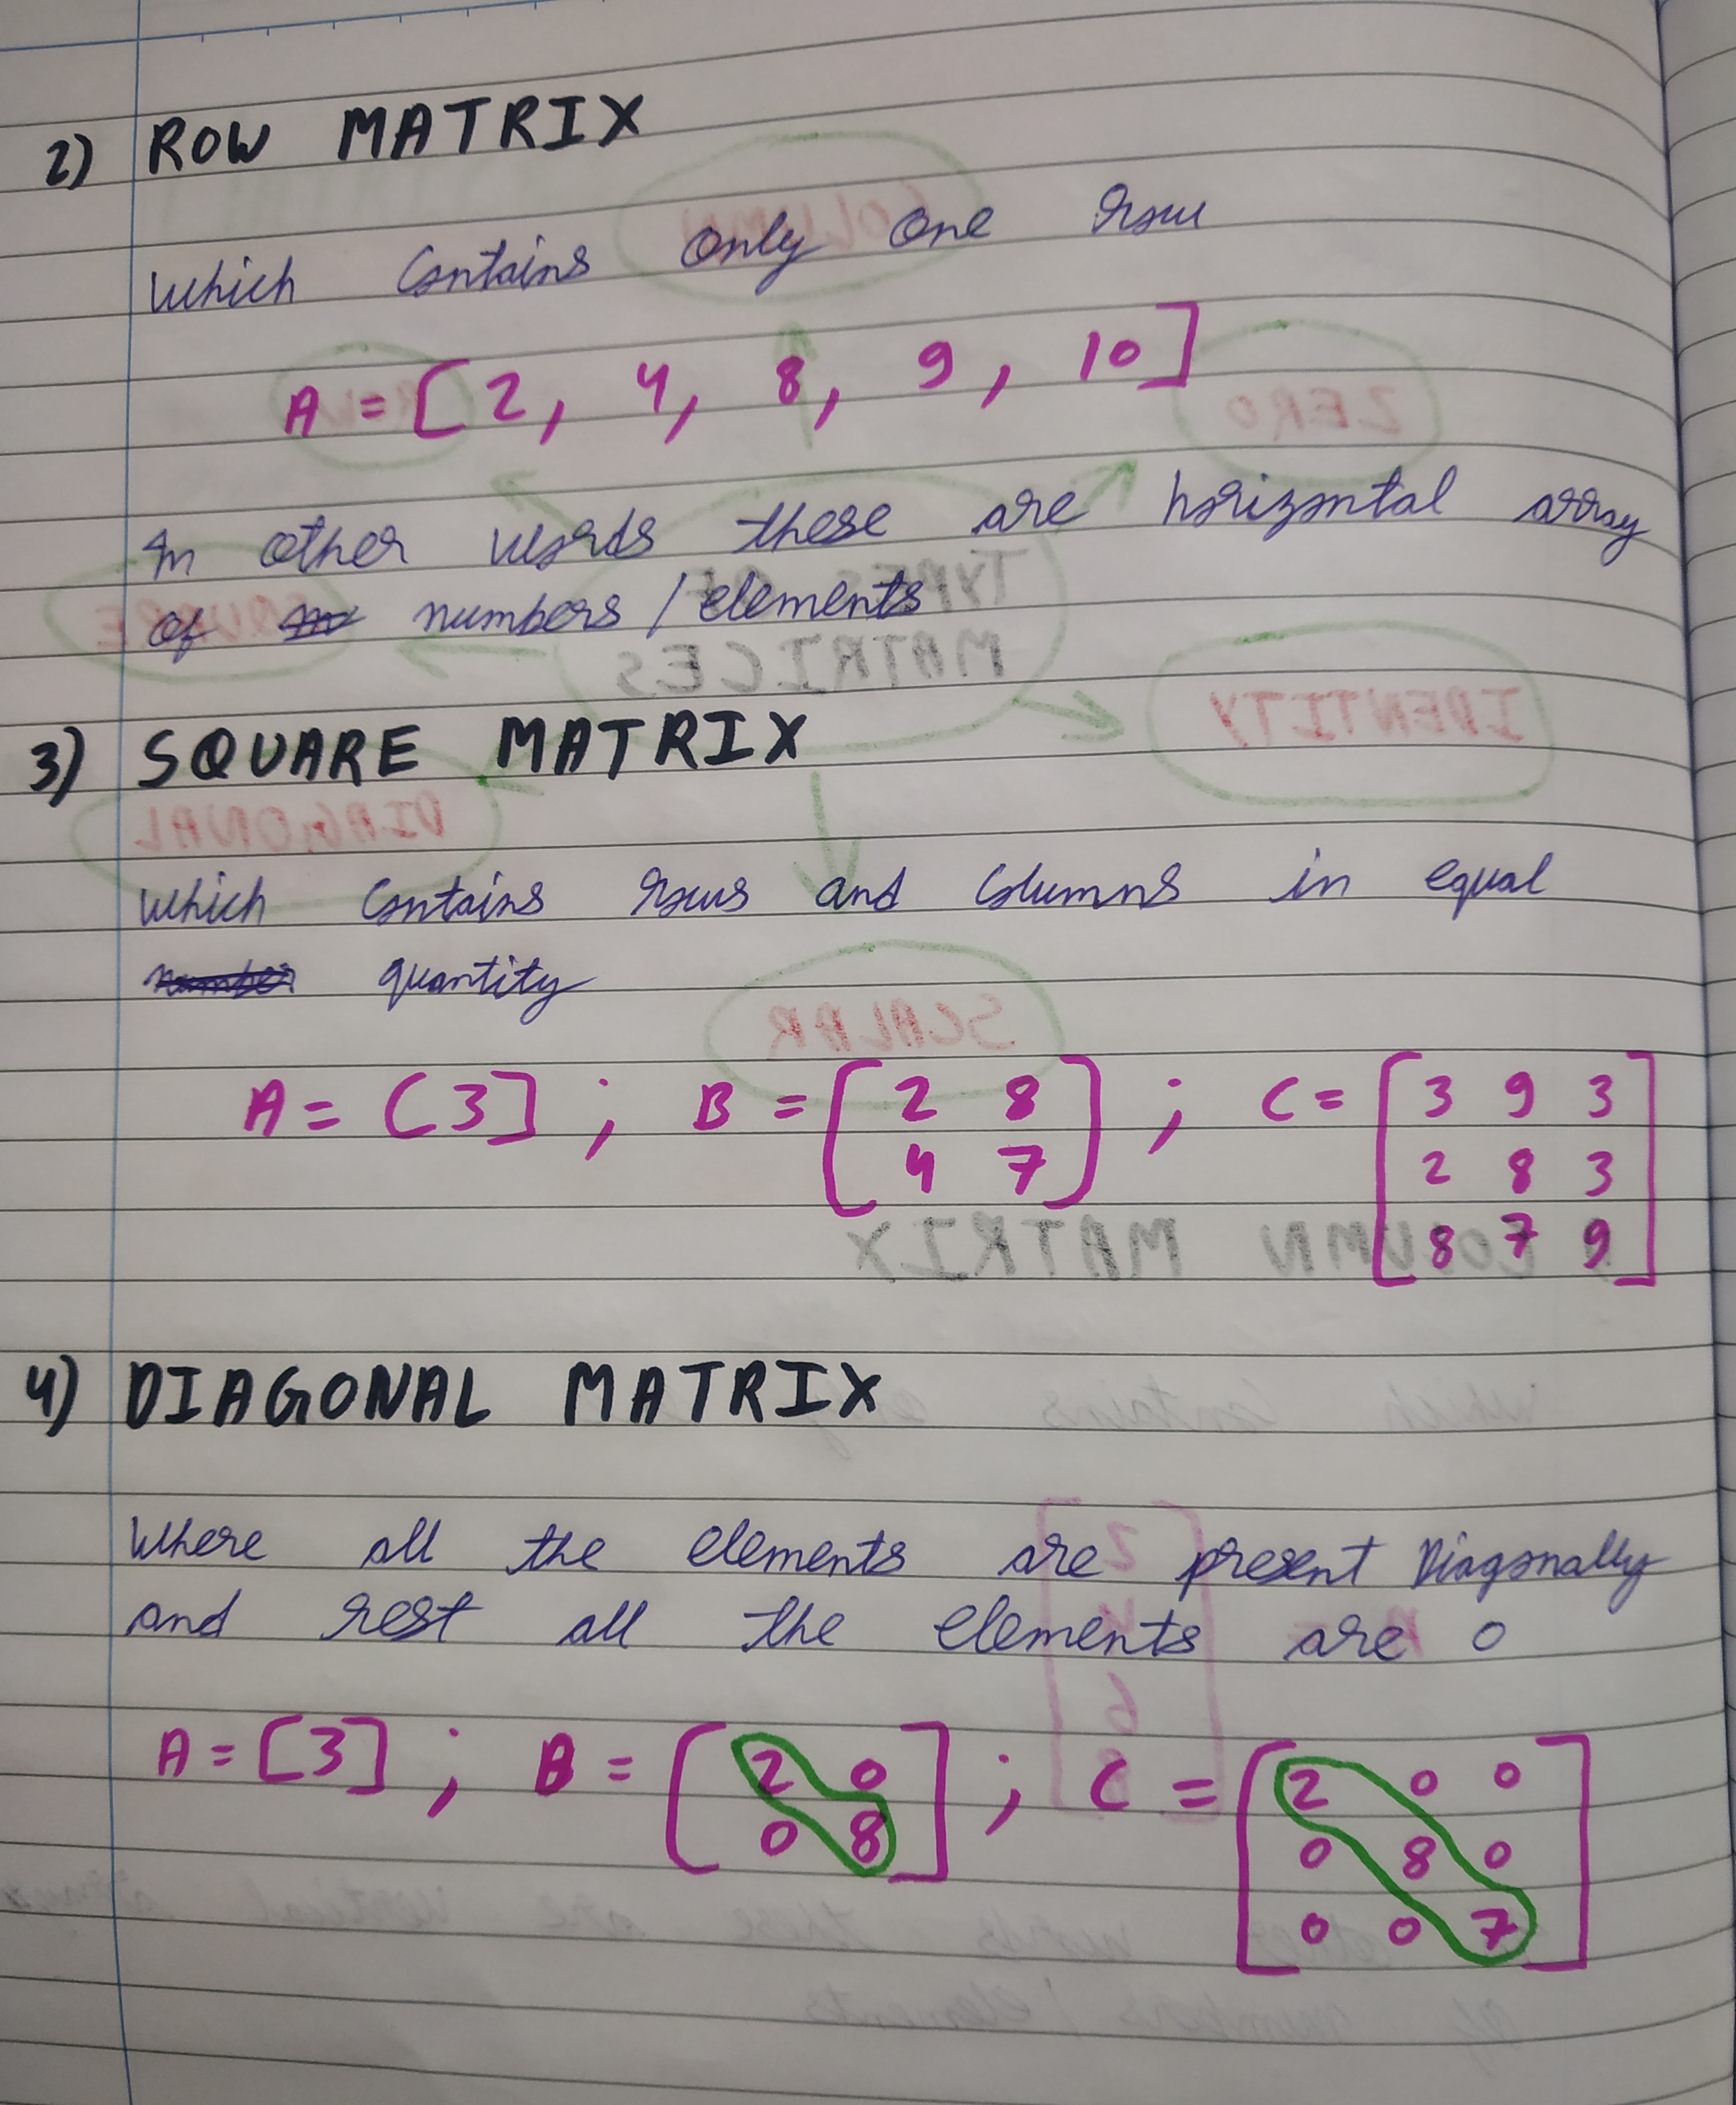 2) ROW MATRIX
Which contains only one row
A = [2, 4, 8, 9, 10]
In other words these are horizontal array
of numbers / elements
3) SQUARE MATRIX
Which contains rows and columns in equal
number quantity
A = [3] ; B = [2 8 ; C = [3 9 3
4 7] 2 8 3
8 7 9]
4) DIAGONAL MATRIX
Where all the elements are present Diagonally
and rest all the elements are 0
A = [3] ; B = [2 0 ; C = [2 0 0
0 8] 0 8 0
0 0 7]